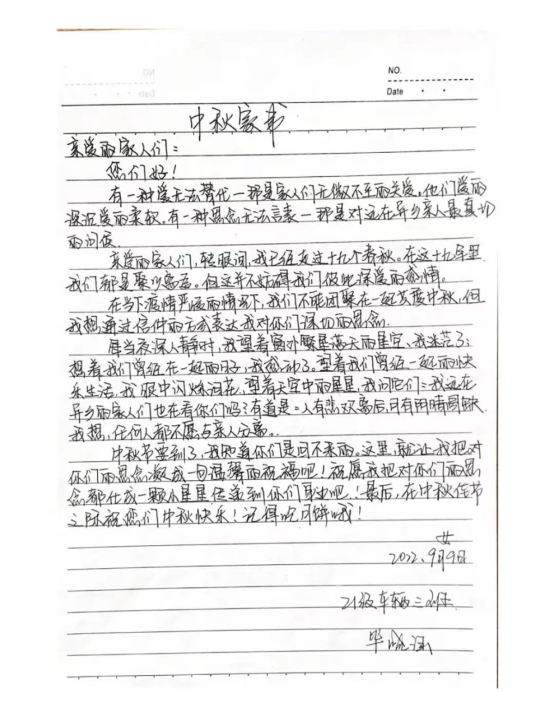 NO.
Date
中秋家书
亲爱的家人们：
您们好！
有一种爱无法替代—那是家人们无微不至的关爱。他们爱的
深沉爱的柔软。有一种思念无法言表—那是对远在异乡亲人最真切
的问候
亲爱的家人们，转眼间，我已经走过十九个春秋。在这十九年里
我们都是聚少离多。但这并不妨碍我们彼此深爱的感情。
在当下疫情严峻的情况下，我们不能团聚在一起共度中秋，但
我想通过信件的方式表达我对你们深切的思念
每当夜深人静时，我望着窗外繁星满天的星空，我迷茫了；
想着我们曾经在一起的日子，我感动了。望着我们曾经一起的快
乐生活，我眼中闪烁泪花，望着天空中的星星，我问它们：我远在
异乡的家人们也在看你们吗？有道是：人有悲欢离合，月有阴晴圆缺
我想，任何人都不愿与亲人分离。
中秋节要到了，我知道你们是回不来的。这里，就让我把对
你们的思念凝成一句温馨的祝福吧！祝愿我把对你们的思
念都化成一颗小星星传递到你们身边吧！最后，在中秋佳节
之际祝您们中秋快乐！记得吃月饼哦！
女
2022.9月9日
21级车辆三班